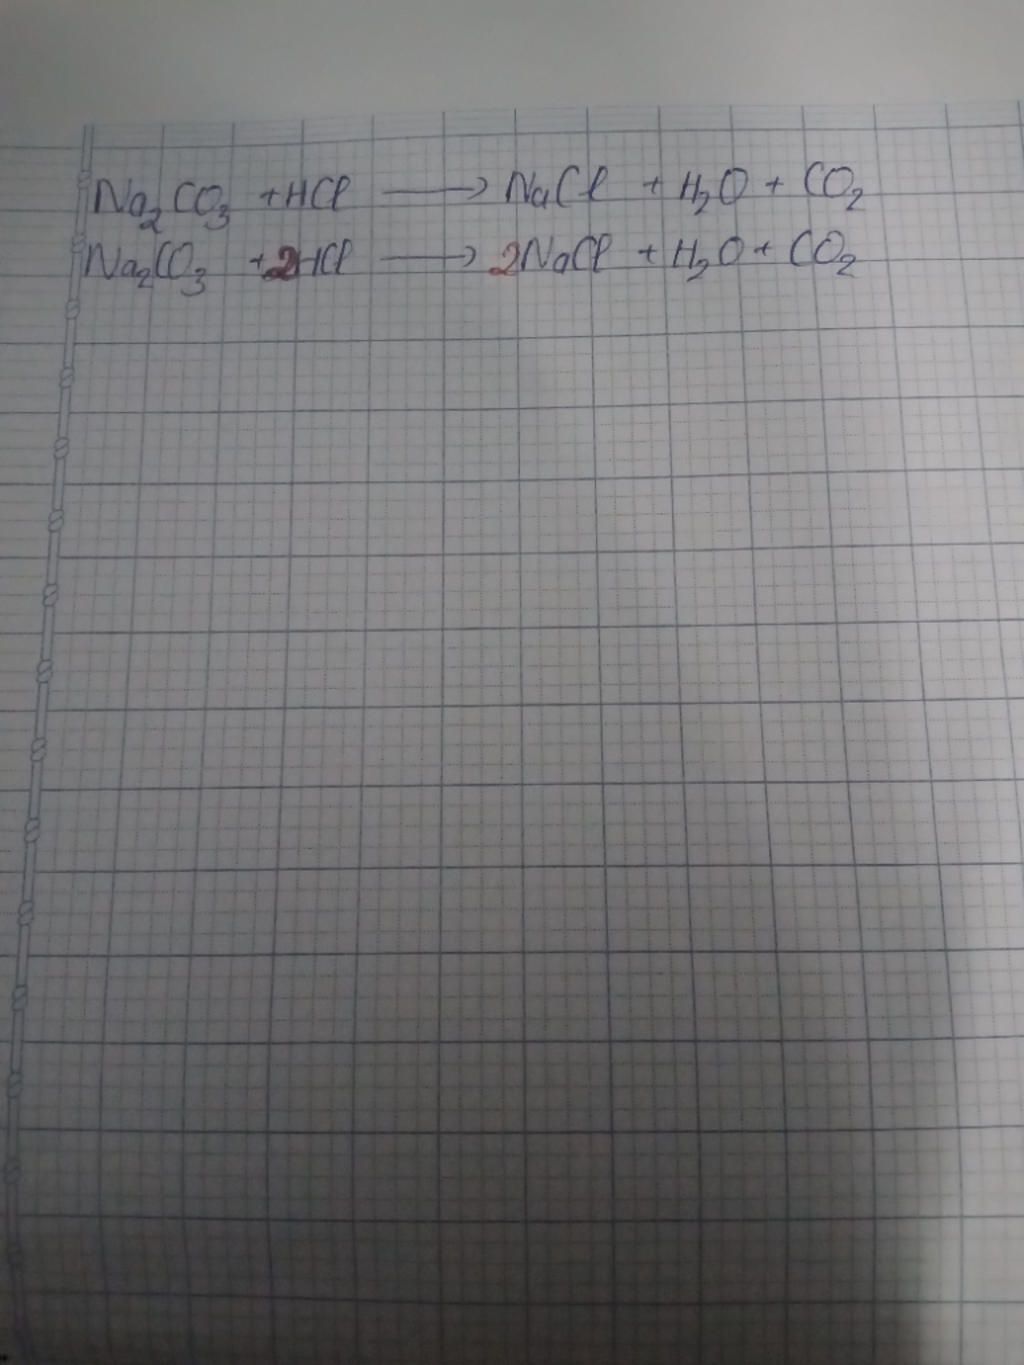 Na₂CO₃ + HCl → NaCl + H₂O + CO₂
Na₂CO₃ + 2HCl → 2NaCl + H₂O + CO₂